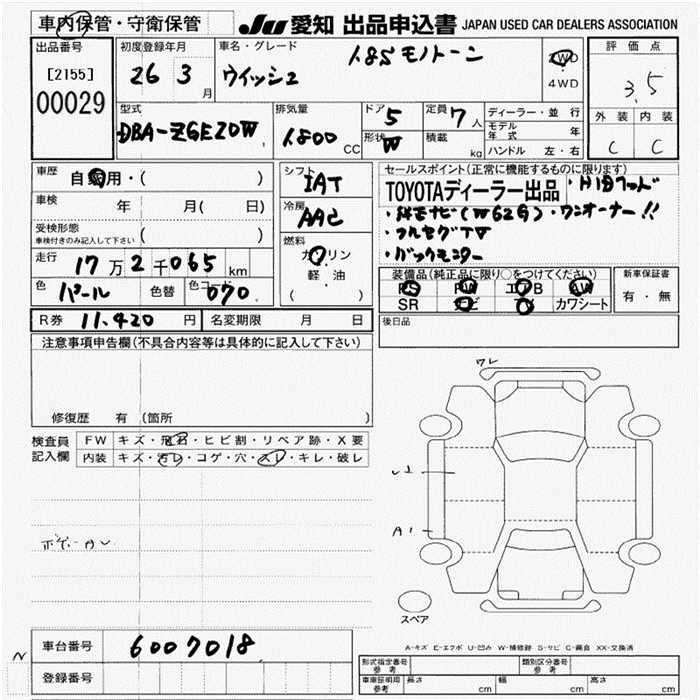 車内保管・守衛保管 JU 愛知 出品申込書 JAPAN USED CAR DEALERS ASSOCIATION
出品番号
[2155]
00029
初度登録年月
26 3月
車名・グレード
ウィッシュ 1.8S モノトーン
2WD
・
4WD
評価点
3.5
外装 内装
C C
型式
DBA-ZGE20W
排気量
1800 CC
ドア 5
形状 W
定員 7人
積載 kg
ディーラー・並行
モデル年式 年
ハンドル 左・右
車歴 自家用・( )
車検 年 月( 日)
受検形態
車検付きのみ記入して下さい ( )
走行 17万2千065km
色 パール 色替 色コード 070
シフト
IAT
冷房
AAC
燃料
ガソリン
・
軽・油
( )
セールスポイント(正常に機能するものに限ります)
TOYOTAディーラー出品 ・HIDヘッド
・純正ナビ(W62G)・ワンオーナー!!
・フルセグTV
・バックモニター
装備品(純正品に限り○をつけてください)
PS PW エアB AW
SR ナビ TV カワシート
新車保証書
有・無
R券 11,420円 名変期限 月 日
後日品
注意事項申告欄(不具合内容等は具体的に記入して下さい)
修復歴 有 (箇所 )
検査員
記入欄
FW キズ・飛石・ヒビ割・リペア跡・X要
内装 キズ・汚レ・コゲ・穴・スレ・キレ・破レ
ワレ
U3
A1
スペア
A-キズ E-エクボ U-凹み W-補修跡 S-サビ C-腐食 XX-交換済
車台番号 6007018
登録番号
N
形式指定番号
参考
類別区分番号
参考
車庫証明用
参考
長さ cm 幅 cm 高さ cm